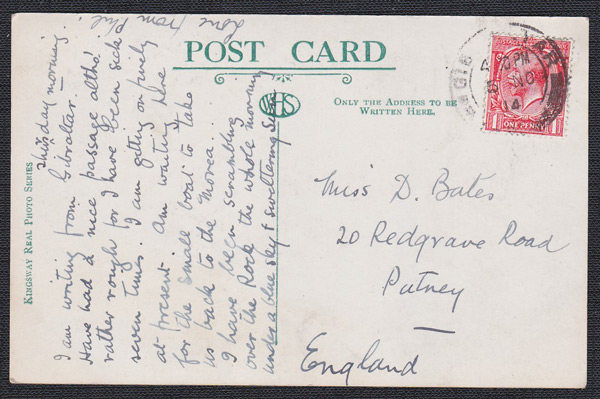 POST CARD
WHS
ONLY THE ADDRESS TO BE
WRITTEN HERE.
KINGSWAY REAL PHOTO SERIES
Thursday morning.
I am writing from Gibraltar.
Have had a nice passage altho'
rather rough for I have been sick
seven times. I am getting on finely
at present. Am waiting the
for the small boat to take
us back to the Morea.
I have been scrambling
over the Rock the whole morning
under a blue sky & sweltering sun
Love from Phil.
Miss D. Bates
20 Redgrave Road
Putney
England
PM
NO
14
ONE PENNY
1 1